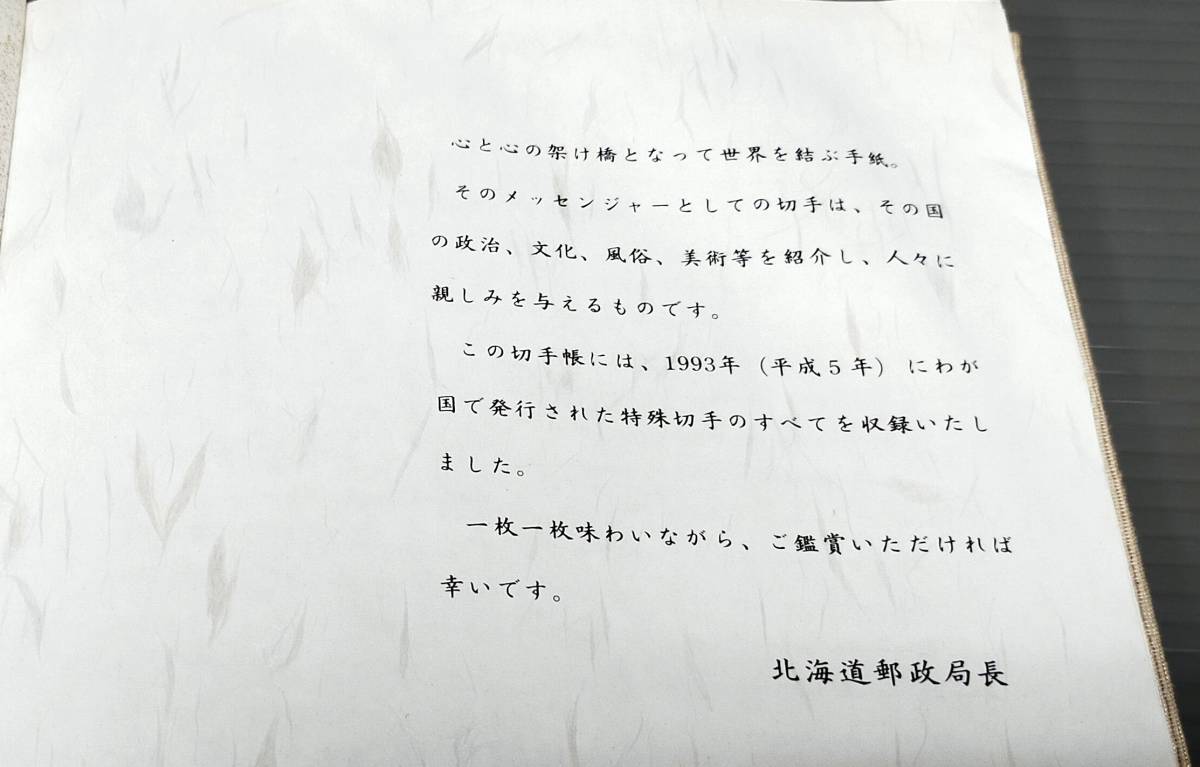 心と心の架け橋となって世界を結ぶ手紙。
そのメッセンジャーとしての切手は、その国
の政治、文化、風俗、美術等を紹介し、人々に
親しみを与えるものです。
この切手帳には、1993年（平成５年）にわが
国で発行された特殊切手のすべてを収録いたし
ました。
一枚一枚味わいながら、ご鑑賞いただければ
幸いです。
北海道郵政局長